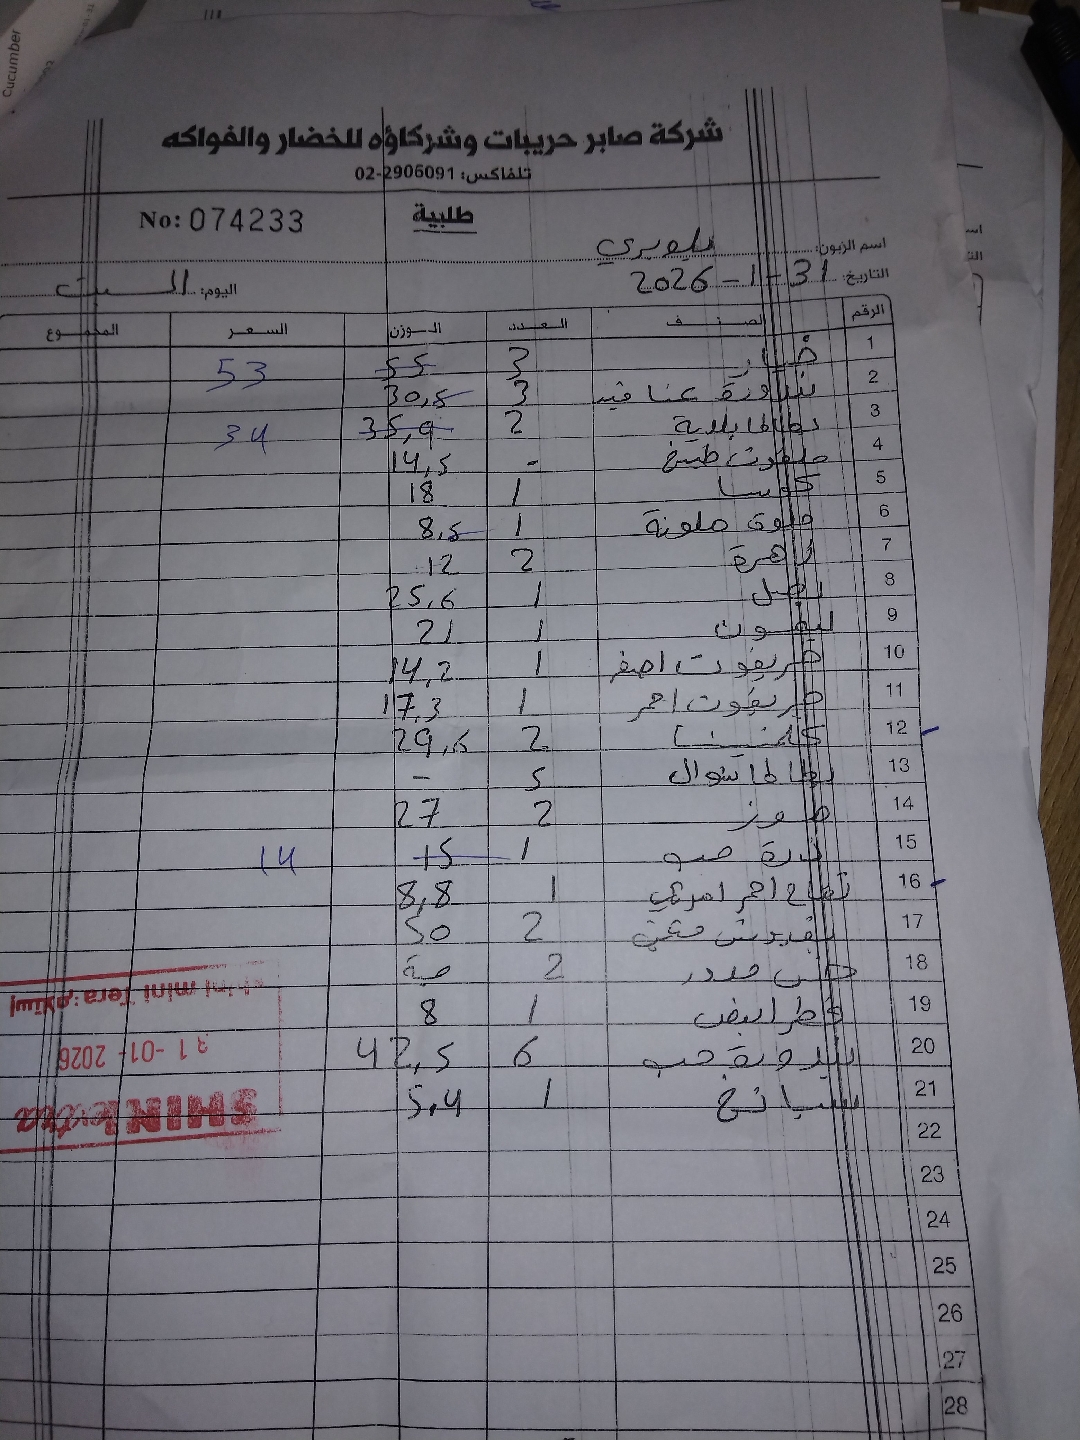 Cucumber
شركة صابر حريبات وشركاؤه للخضار والفواكه
تلفاكس: 02-2906091
No: 074233
طلبية
اسم الزبون:
التاريخ: 31-1-2026
اليوم: السبت
الرقم الصنف العدد الوزن السعر المجموع
1 خيار 3 55 53
2 بندورة عناقيد 3 30,5
3 بطاطا بلدية 2 35,9 34
4 ملفوف طبيخ - 14,5
5 كوسا 1 18
6 ملونة 1 8,5
7 زهرة 2 12
8 بصل 1 25,6
9 ليمون 1 21
10 جريفوت اصفر 1 14,2
11 جريفوت احمر 1 17,3
12 كلمنتينا 2 29,6
13 بطاطا شوال 5 -
14 موز 2 27
15 ذرة حب 1 15 14
16 تفاح احمر 1 8,8
17 2 50
18 خس مدور 2 حبة
19 فطر ابيض 1 8
20 بندورة حب 6 42,5
21 سبانخ 1 5,4
22
23
24
25
26
27
28
إستلام: mini Tera
31-01-2026
SHINI extra